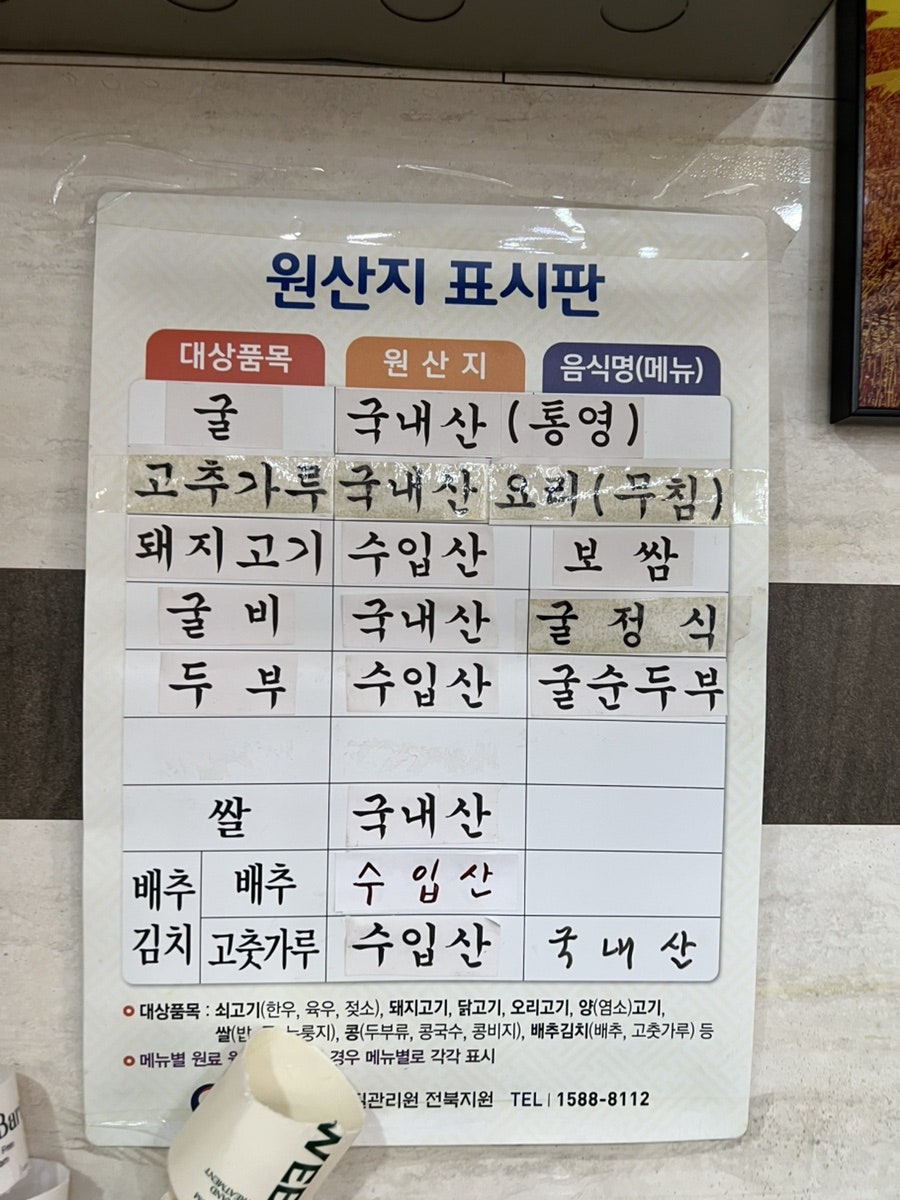 원산지 표시판
대상품목 원산지 음식명(메뉴)
굴 국내산 (통영)
고추가루 국내산 요리(무침)
돼지고기 수입산 보쌈
굴비 국내산 굴정식
두부 수입산 굴순두부
쌀 국내산
배추김치 배추 수입산
고춧가루 수입산 국내산
대상품목 : 쇠고기(한우, 육우, 젖소), 돼지고기, 닭고기, 오리고기, 양(염소)고기,
쌀(밥, 누룽지), 콩(두부류, 콩국수, 콩비지), 배추김치(배추, 고춧가루) 등
메뉴별 원료 경우 메뉴별로 각각 표시
관리원 전북지원 TEL | 1588-8112